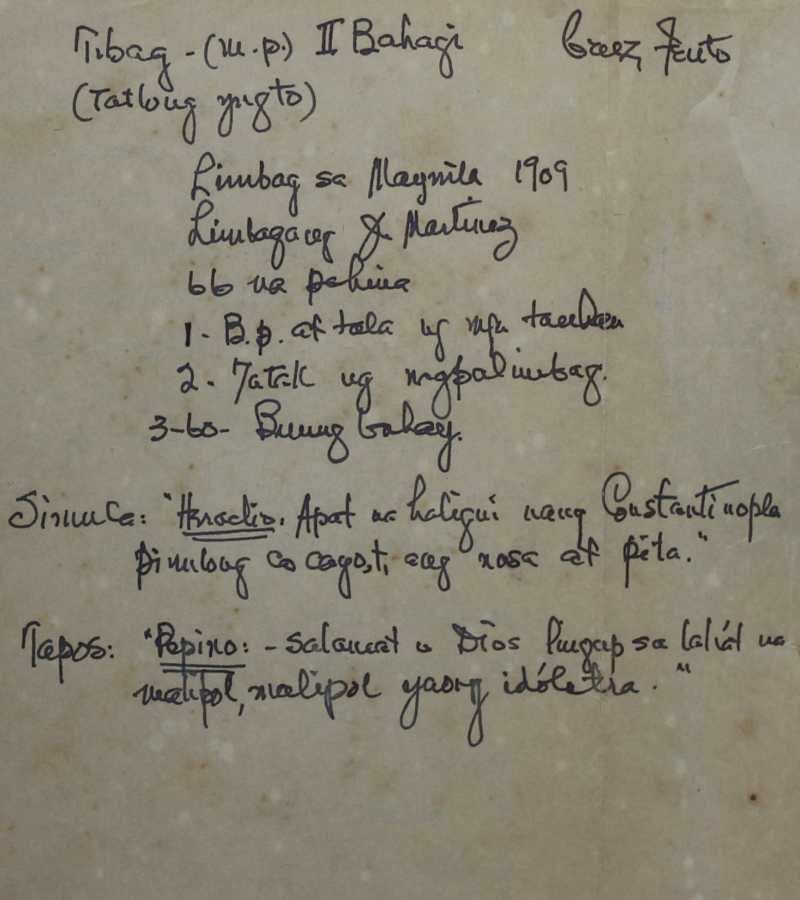 Tibag - (m.p.) II Bahagi Cruz, Fruto
(Tatlong yugto)
Limbag sa Maynila 1909
Limbagang J. Martinez
66 na pahina
1 - B.p. at tala ng mga tauhan
2 - Tatak ng nagpalimbag.
3-60- Buung buhay.
Simula: "Heraclio. Apat na haligui nang Constantinopla
at pita."
Tapos: "Pepino: - Salamat o Dios lingap sa lahát na
malipol, malipol yaong idólatra."